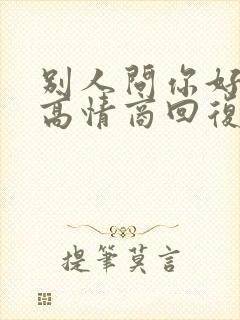 别人問你好
高情商回復
提筆莫言